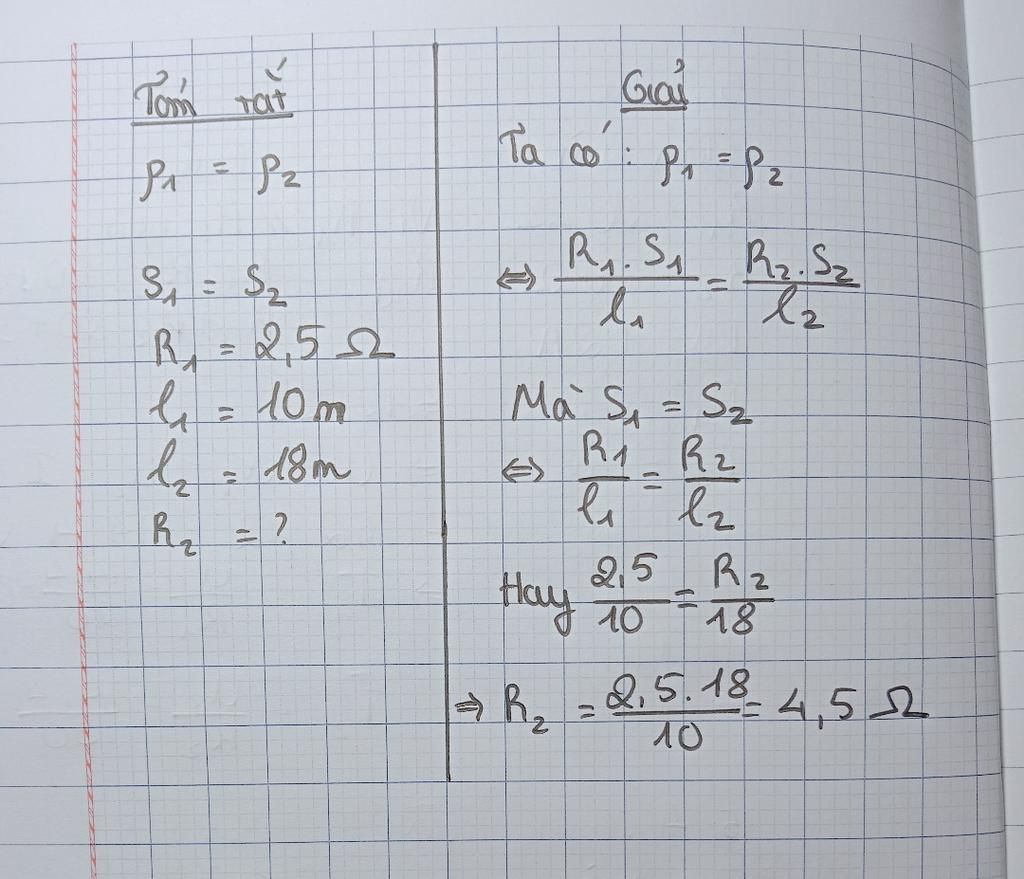 Tóm tắt
ρ₁ = ρ₂
S₁ = S₂
R₁ = 2,5 Ω
l₁ = 10 m
l₂ = 18m
R₂ = ?
Giải
Ta có : ρ₁ = ρ₂
⇔ R₁.S₁/l₁ = R₂.S₂/l₂
Mà S₁ = S₂
⇔ R₁/l₁ = R₂/l₂
Hay 2,5/10 = R₂/18
⇒ R₂ = 2,5.18/10 = 4,5 Ω